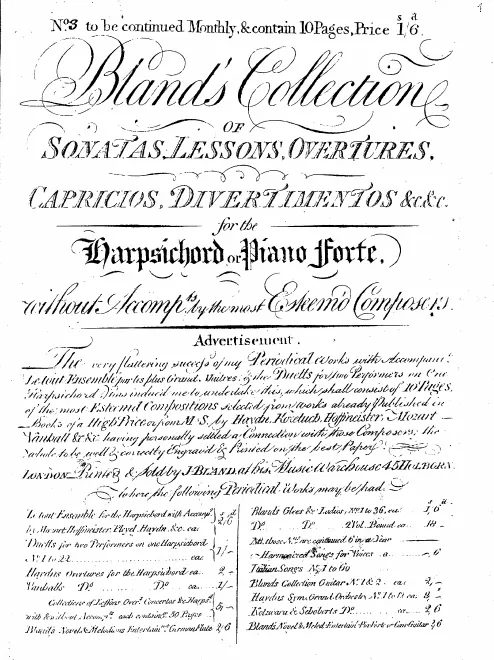 No. 3 to be continued Monthly, & contain 10 Pages, Price 1s/6d
Bland's Collection
OF
SONATAS, LESSONS, OVERTURES,
CAPRICIOS, DIVERTIMENTOS &c. &c.
for the
Harpsichord or Piano Forte,
without Accompts. by the most Esteem'd Composers.
Advertisement.
The very flattering success of my Periodical Works with Accompanis.
Le tout Ensemble par les plus Grand Maitres & the Duetts for two Performers on One
Harpsichord has induced me to undertake this, which shall consist of 10 Pages,
of the most Esteem'd Compositions selected from Works already Published in
Books of a High Price or from M.S. by Haydn, Kozeluch, Hoffmeister, Mozart
Vanhall &c &c having personally settled a Connection with those Composers; the
whole to be well & correctly Engrav'd & Printed on the best Paper.
LONDON Printed & Sold by J. BLAND at his Music Warehouse 45 HOLBORN.
where the following Periodical Works may be had
Le tout Ensemble for the Harpsichord with Accompts.
by Mozart Hoffmeister, Pleyel, Haydn, &c. ea: 2s/6d
Duetts for two Performers on one Harpsichord
No. 1 to 22 ea: 1/-
Haydns Overtures for the Harpsichord ea. 2,-
Vanhalls Do. Do. 1/-
Collections of Lessons Overs. Concertos & Harpsd.
with & without Accompts. and containg. 50 Pages 5,-
Bland's Novel & Melodious Entertainmt. German Flute 2,6
Blands Glees & Ladies, No. 1 to 36, ea: 1s,6d
Do. Do. 2 Vol. Bound ea. 18-
NB. those Nos. are continued 6 in a Year
Harmonized Songs for Voices -,6
Italian Songs No. 1 to 60
Blands Collection Guitar No. 1 & 2 ea: 2,-
Haydns Syms. Grand Orchestre No. 1 to ea: 3,-
Kotzwara & Schoberts Do. ea: 2,6
Bland's Novel & Melod. Entertain. For Forte or Com. Guitar 2,6